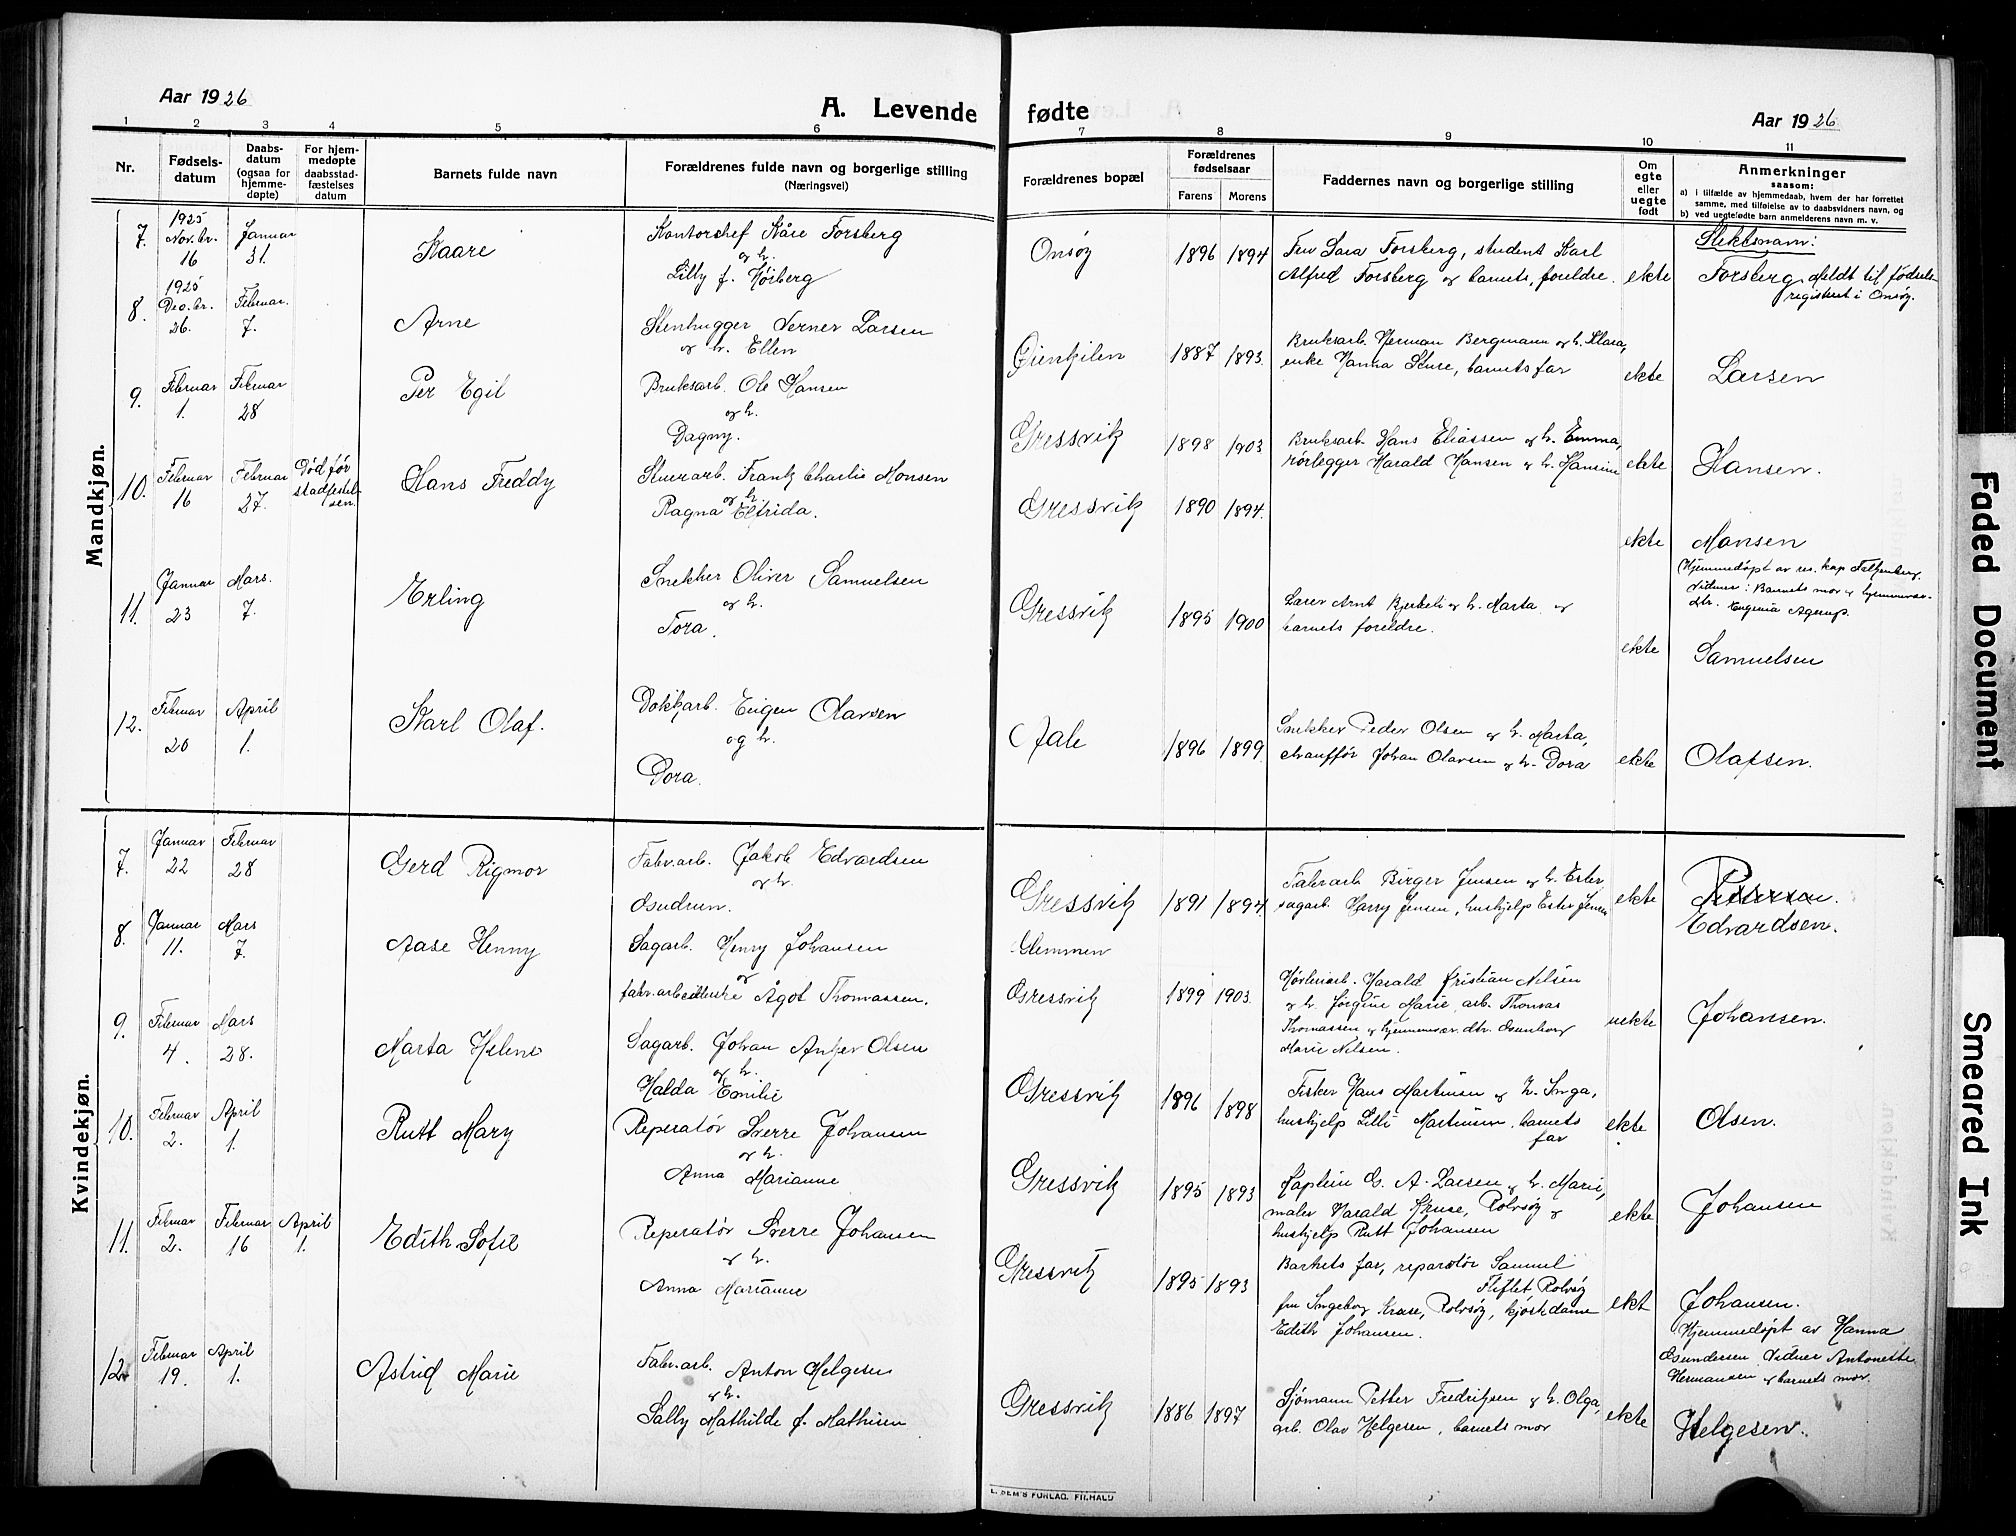 Aar 1926
A. Levende
fødte
Aar 1926
1 2 3 4 5 6 7 8 9 10 11
Nr.
Fødsels-
datum
Daabs-
datum
(ogsaa for
hjemme-
døpte)
For hjem-
medøpte
daabsstad-
fæstelses
datum
Barnets fulde navn
Forældrenes fulde navn og borgerlige stilling
(Næringsvei)
Forældrenes bopæl
Forældrenes
fødselsaar
Farens Morens
Faddernes navn og borgerlige stilling
Om
egte
eller
uegte
født
Anmerkninger
saasom:
a) i tilfælde av hjemmedaab, hvem der har forrettet
samme, med tilføielse av to daabsvidners navn, og
b) ved uegtefødte barn anmelderens navn m. v.
Mandkjøn.
7.
1925
Nov.br.
16
Januar
31.
Kaare
Kontorchef Kåre Forsberg
og h.
Lilly f. Høsberg
Onsøy
1896 1894
Fru Sara Forsberg, student Karl
Alfred Forsberg og barnets foreldre.
ekte
Slektsnavn:
Forsberg Meldt til fødsels-
registeret i Onsøy.
8.
1925
Des.br.
26.
Februar.
7.
Arne
Stenhugger Verner Larsen
og h. Ellen
1887 1893.
Bruksarb. Herman Bergmann og h. Klara,
enke Hanna Skure, barnets far
ekte
Larsen
9.
Februar
1.
Februar
28
Per Egil
Bruksarb. Ole Hansen
og h.
Dagny.
Gressvik
1898 1903
Bruksarb. Hans Eliassen og h. Emma,
rørlegger Harald Hansen og h. Hansine
ekte
Hansen.
10.
Februar
16
Februar
27.
Død før
stadfestel-
sen.
Hans Freddy
Stuerarb. Frantz Charlie Monsen
og h.
Ragna Elfrida.
Gressvik
1890 1894.
ekte
Monsen
Hjemmedøpt av res. kap Falkenberg.
Vidner: Barnets mor og hjemmevær.
dtr. Eugenia Agerup.
11.
Januar
23
Mars.
7.
Erling
Snekker Oliver Samuelsen
og h.
Tora.
Gressvik
1895 1900
Lærer Arnt Bjerkeli og h. Marta og
barnets foreldre.
ekte
Samuelsen
12.
Februar
20
April
1.
Karl Olaf.
Dokkarb. Eugen Olavsen
og h.
Dora.
Aale
1896 1899.
Snekker Peder Olsen og h. Marta,
chauffør Johan Olavsen og h. Dora
ekte
Olafsen.
Kvindekjøn.
7.
Januar
22
Februar
28
Gerd Rigmor
Fabr.arb. Jakob Edvardsen
og h.
Gudrun.
Gressvik
1891 1894
Fabr.arb Birger Jensen og h. Ester
sagarb. Harry Jensen, hushjelp Ester Jensen
ekte
Edvardsen.
8.
Januar
11.
Mars
7.
Aase Henny
Sagarb. Henry Johansen
og
fabr.arbeiderske Ågot Thomassen.
Glemmen
Gressvik
1899 1903.
Høvleriarb. Harald Kristian Nilsen
og h. Jørgine Marie, arb. Thomas
Thomassen og hjemmevær. dtr. Gunborg
Marie Nilsen.
uekte
Johansen.
9.
Februar
4.
Mars
28.
Marta Helene
Sagarb. Johan Anker Olsen
og h.
Halda Emilie
Gressvik
1896 1898
Fisker Hans Martinsen og h. Inga,
hushjelp Lilli Martinsen, barnets
far
ekte
Olsen.
10.
Februar
2.
April
1.
Rutt Mary
Reperatør Sverre Johansen
og h.
Anna Marianne
Gressvik
1895 1893
Kaptein G. A. Larsen og h. Marie,
maler Harald Kruse, Rolvsøy og
hushjelp Rutt Johansen
ekte
Johansen
11.
Februar
2.
Februar
16
April
1.
Edith Sofie
Reperatør Sverre Johansen
og h.
Anna Marianne
Gressvik
1895 1893
Barnets far, reparatør Samuel
Fleflet Rolvsøy
fru Ingeborg Kruse, Rolvsøy, kjøkkdame
Edith Johansen.
ekt
Johansen.
Hjemmedøpt av Hanna
Gundersen. Vidner Antonette
Hermansen og barnets mor.
12.
Februar
19.
April
1.
Astrid Marie
Fabr.arb. Anton Helgesen
og h.
Sally Mathilde f. Mathisen
Gressvik
1886 1897
Sjømann Petter Fredriksen og h. Olga,
arb. Olav Helgesen, barnets mor
ekte
Helgesen.
Faded Document
Smeared Ink